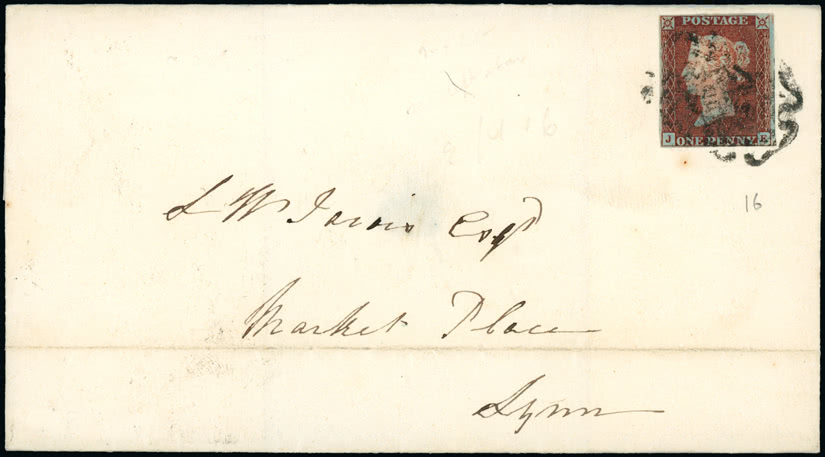 POSTAGE
J ONE PENNY E
16
L W Jarvis Esqr
Market Place
Lynn